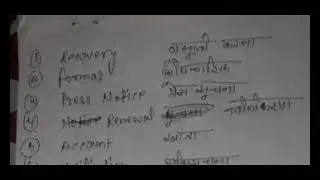 ① Recovery वसूली करना
② Formal औपचारिक
③ Press Notice प्रेस सूचना
④ Renewal नवीनीकरण
⑤ Account खाता